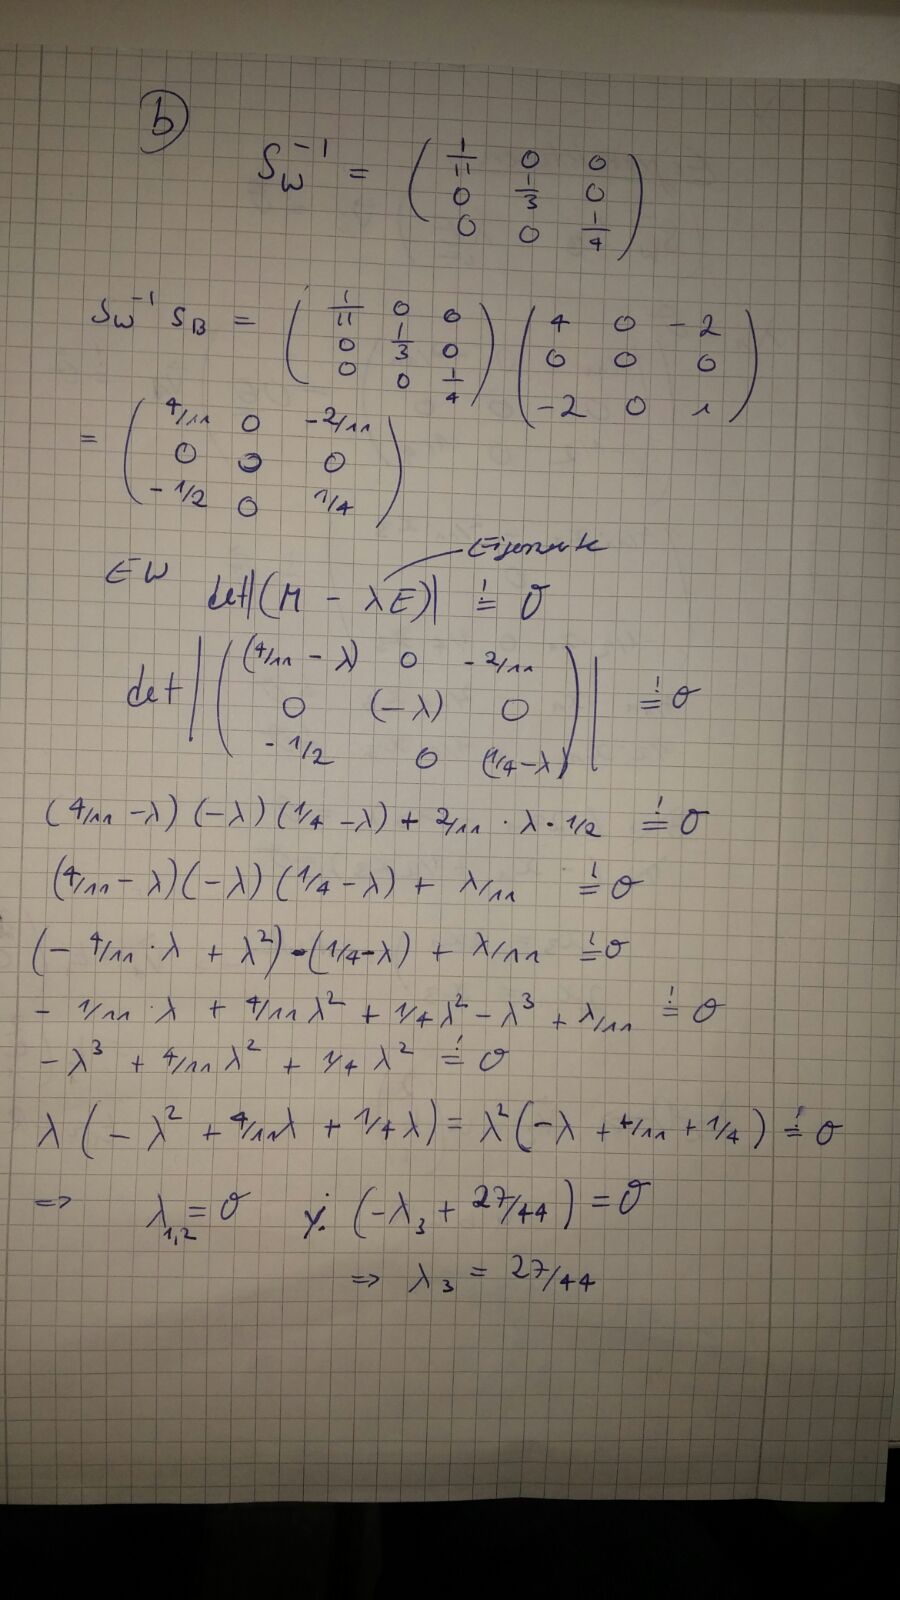 b
S_W^{-1} = ( 1/11 0 0
0 1/3 0
0 0 1/4 )
S_W^{-1} S_B = ( 1/11 0 0
0 1/3 0
0 0 1/4 ) ( 4 0 -2
0 0 0
-2 0 1 )
= ( 4/11 0 -2/11
0 0 0
-1/2 0 1/4 )
Eigenwerte
EW det|(M - λE)| =! 0
det | ( (4/11 - λ) 0 -2/11
0 (-λ) 0
-1/2 0 (1/4-λ) ) | =! 0
(4/11 - λ) (-λ) (1/4 - λ) + 2/11 · λ · 1/2 =! 0
(4/11 - λ) (-λ) (1/4 - λ) + λ/11 =! 0
(- 4/11 · λ + λ²) · (1/4-λ) + λ/11 =! 0
- 1/11 · λ + 4/11 λ² + 1/4 λ² - λ³ + λ/11 =! 0
-λ³ + 4/11 λ² + 1/4 λ² =! 0
λ ( - λ² + 4/11 λ + 1/4 λ) = λ² (-λ + 4/11 + 1/4) =! 0
=> λ_{1,2} = 0 (-λ_3 + 27/44) = 0
=> λ_3 = 27/44